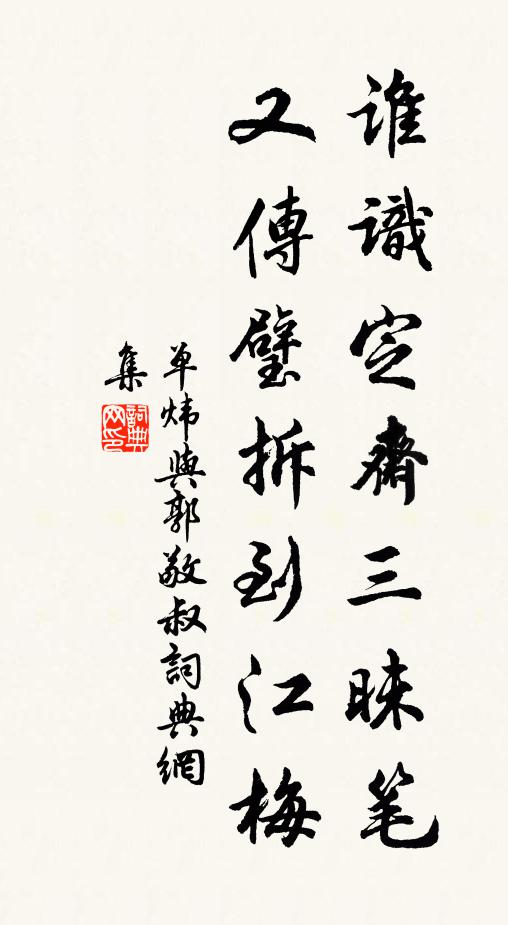 谁識定齋三昧笔
又傳璧拆到江梅
单炜與郭敬叔詞典網
集
詞典網印